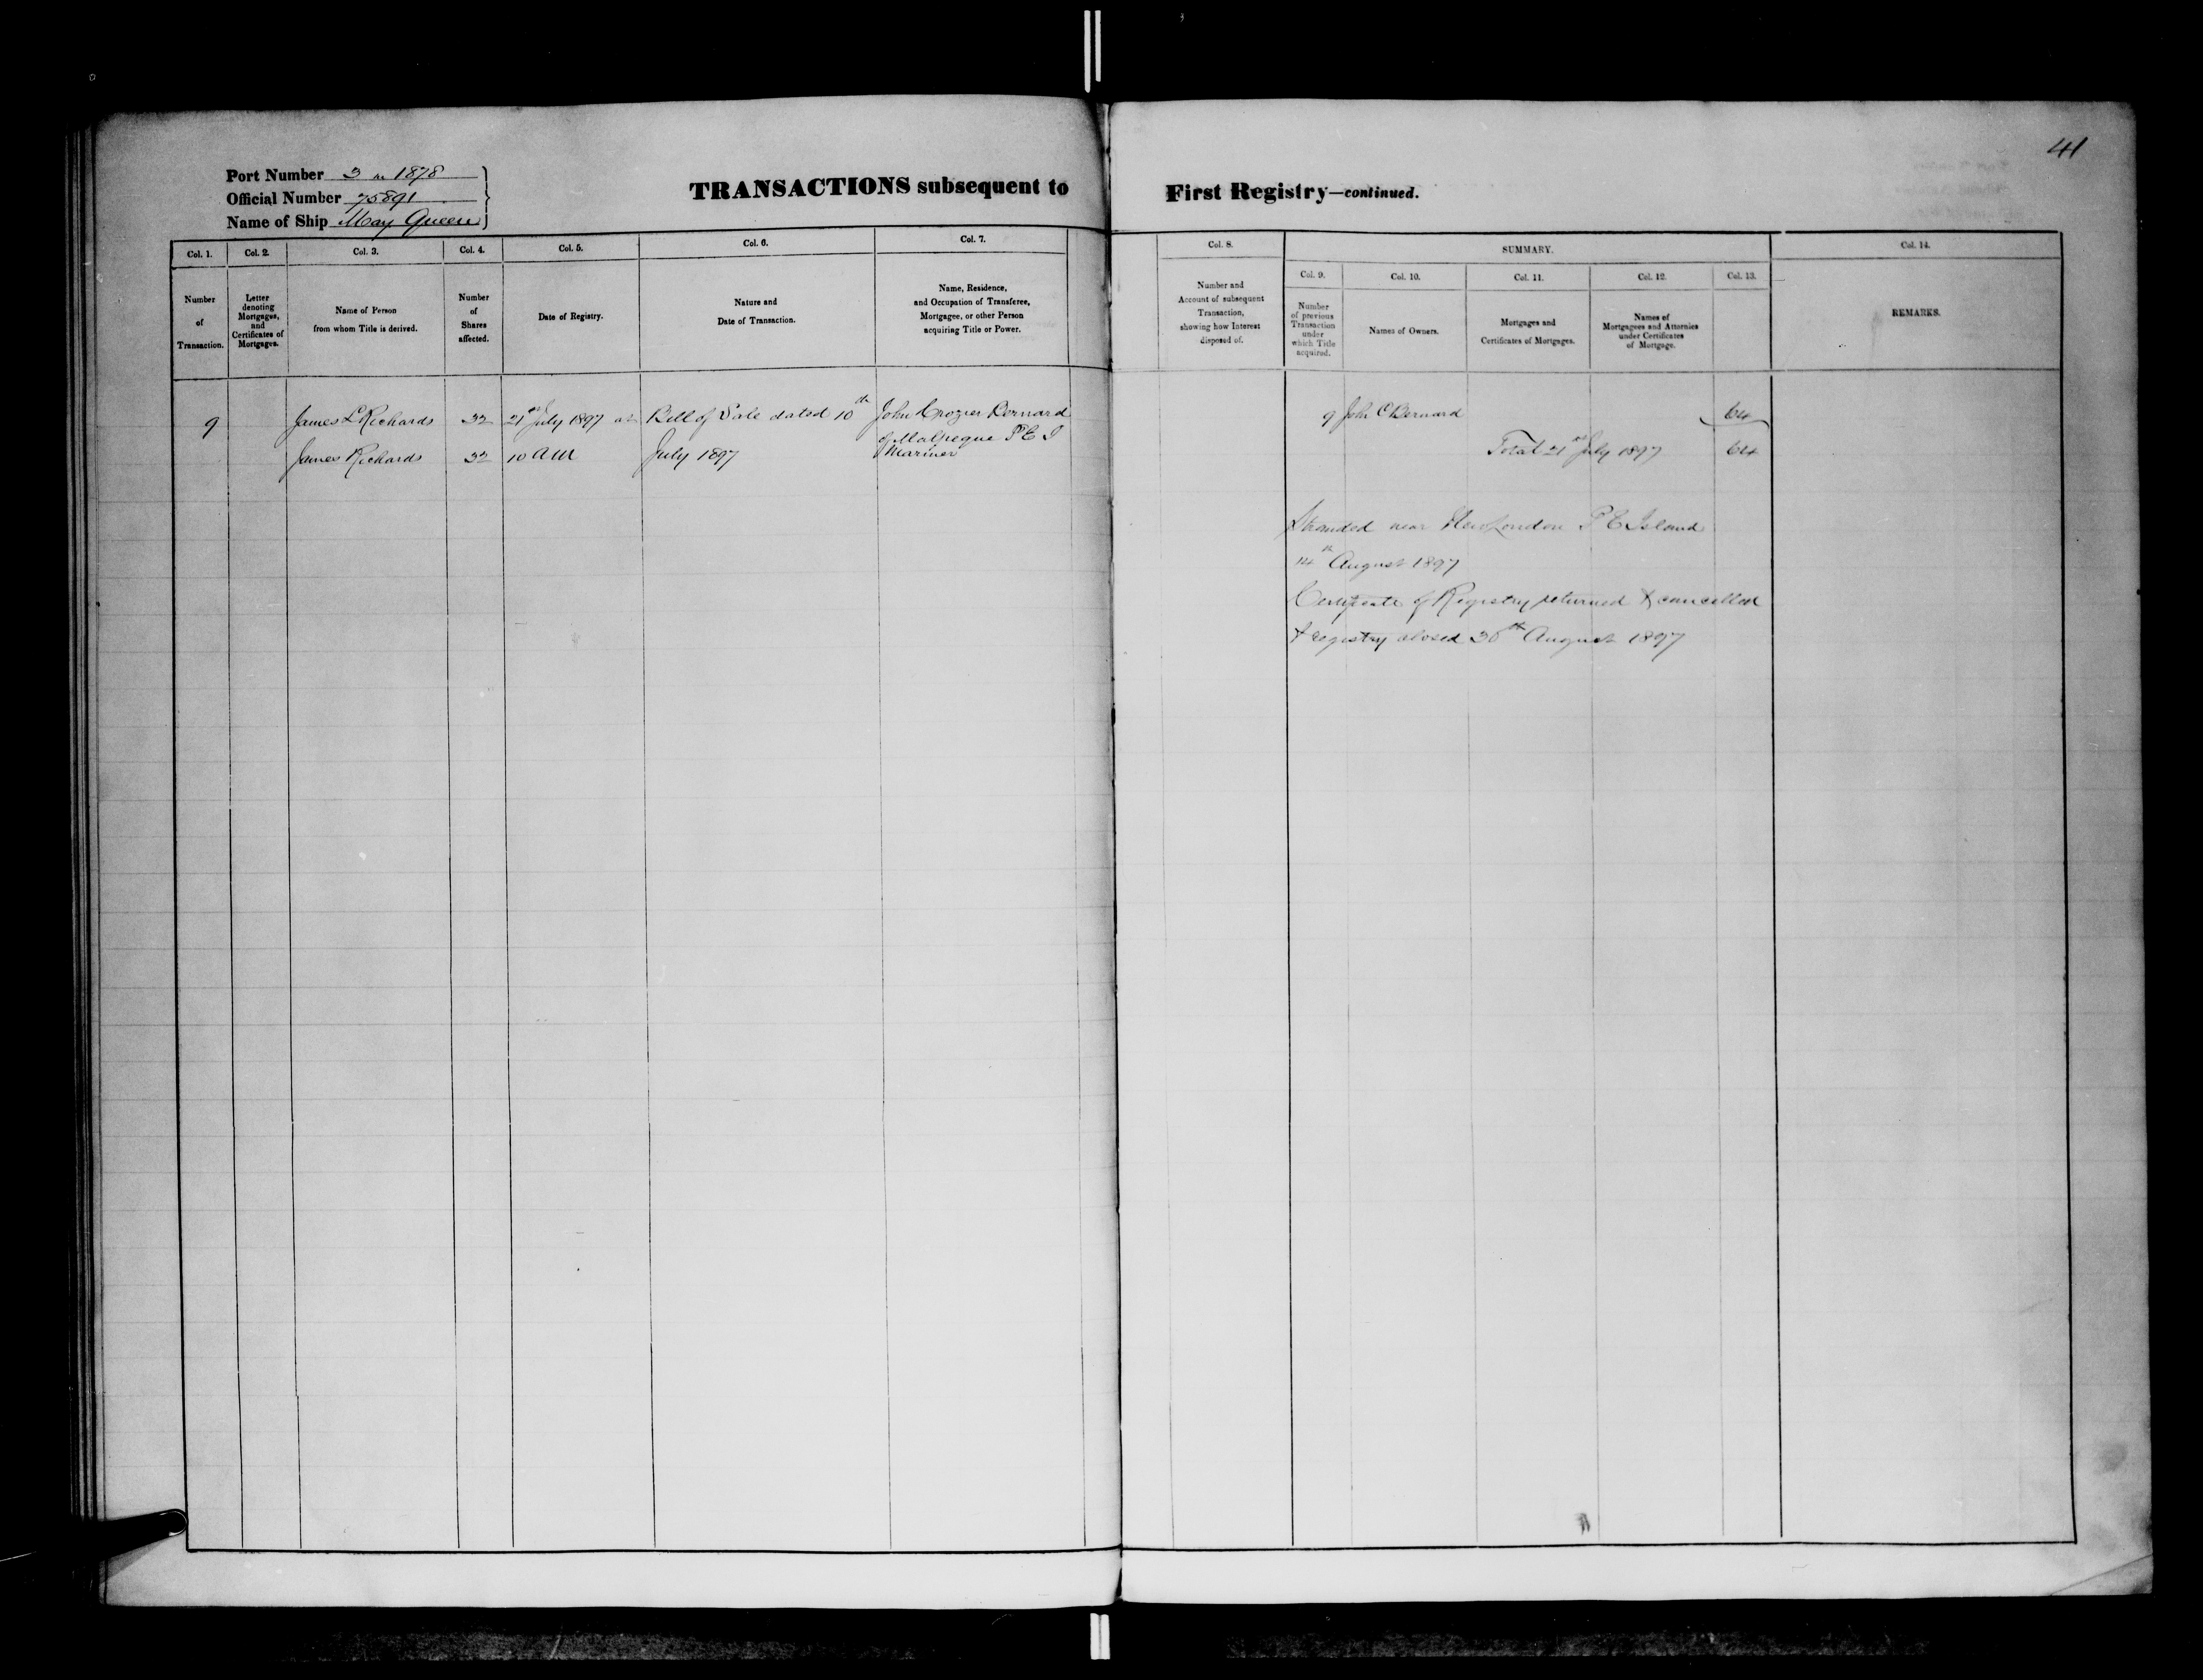 41
Port Number 3 in 1878
Official Number 75891
Name of Ship May Queen
TRANSACTIONS subsequent to First Registry—continued.
Col. 1. Col. 2. Col. 3. Col. 4. Col. 5. Col. 6. Col. 7. Col. 8. SUMMARY. Col. 14.
Col. 9. Col. 10. Col. 11. Col. 12. Col. 13.
Number
of
Transaction.
Letter
denoting
Mortgages,
and
Certificates of
Mortgages.
Name of Person
from whom Title is derived.
Number
of
Shares
affected.
Date of Registry.
Nature and
Date of Transaction.
Name, Residence,
and Occupation of Transferee,
Mortgagee, or other Person
acquiring Title or Power.
Number and
Account of subsequent
Transaction,
showing how Interest
disposed of.
Number
of previous
Transaction
under
which Title
acquired.
Names of Owners.
Mortgages and
Certificates of Mortgages.
Names of
Mortgagees and Attornies
under Certificates
of Mortgage.
REMARKS.
9 James L Richards 32 21st July 1897 at Bill of Sale dated 10th John Crozier Bernard
of Malpeque P E I
James Richards 32 10 AM July 1897 Mariner
9 John C Bernard 64
Total 21st July 1897 64
Stranded near New London P E Island
14th August 1897
Certificate of Registry returned & cancelled
& registry closed 30th August 1897